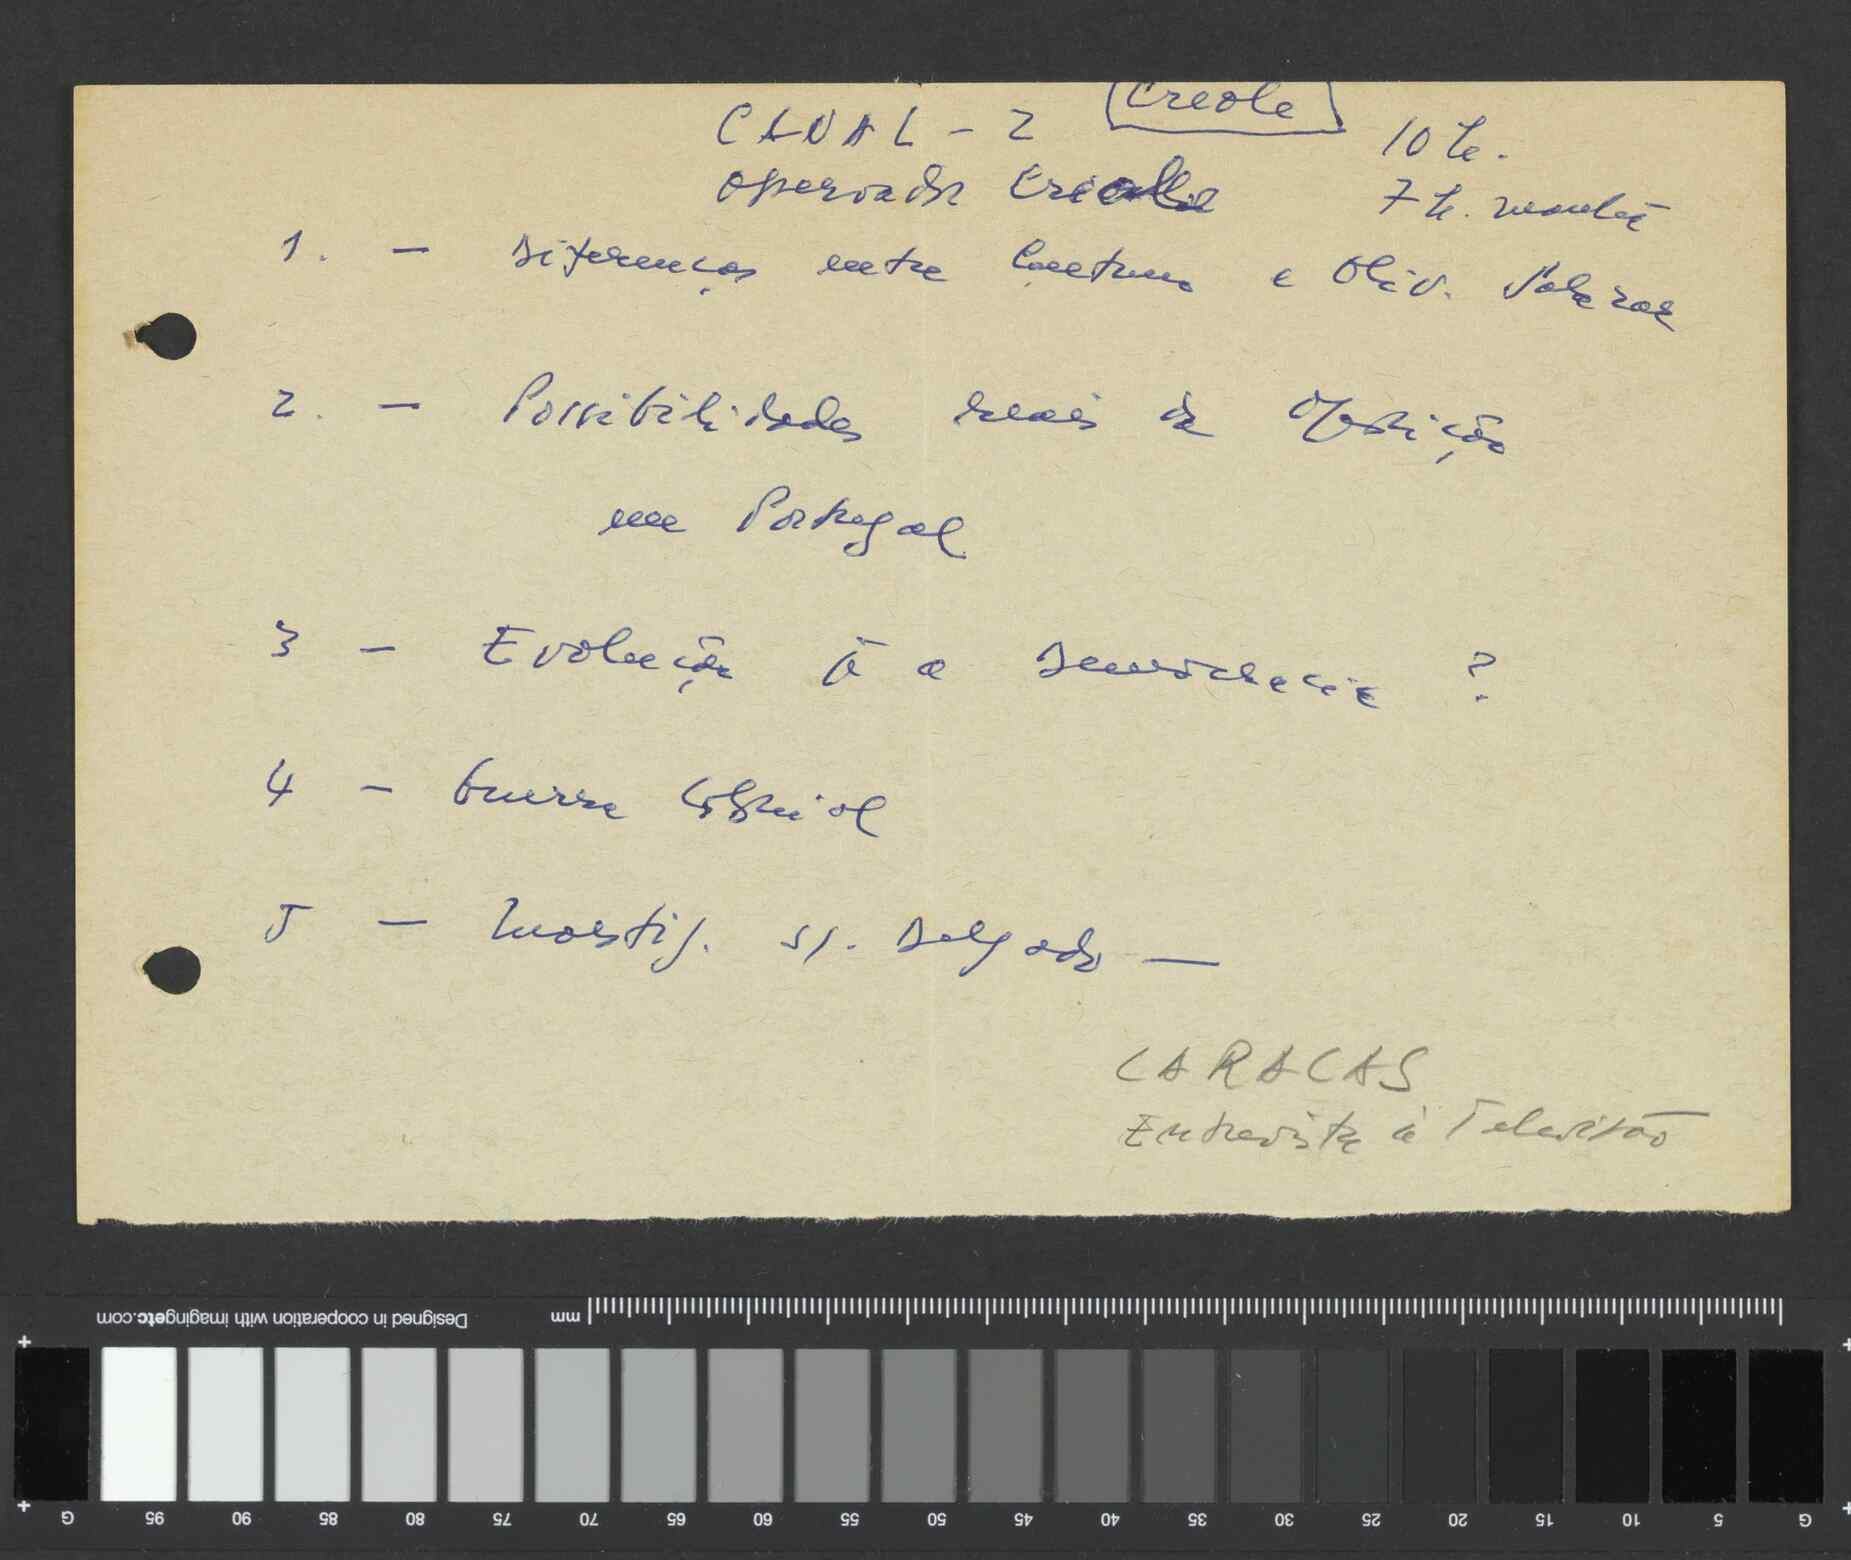 Creole
CANAL - 2 10 h.
Operador Creole 7 h. manhã
1. - Diferenças entre Caetano e Oliv. Salazar
2. - Possibilidades reais da Oposição
em Portugal
3 - Evolução p̃ a Democracia ?
4 - Guerra Colonial
5 - Investig. s/. Delgado —
CARACAS
Entrevista à Televisão
mm
Designed in cooperation with imagingetc.com
G 95 90 85 80 75 70 65 60 55 50 45 40 35 30 25 20 15 10 5 G